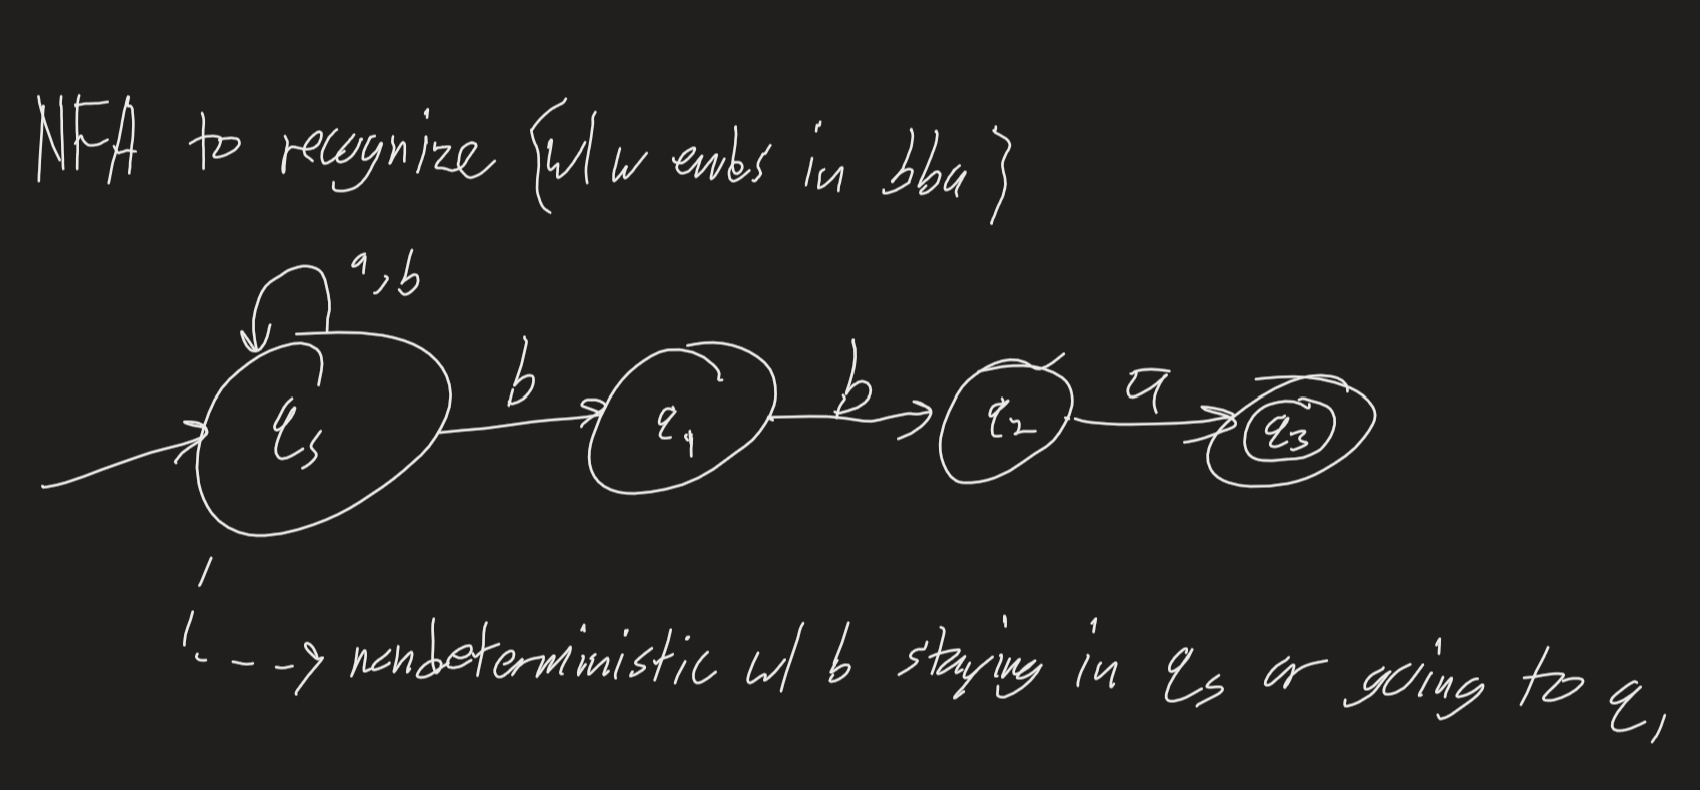 NFA to recognize {w| w ends in bba}
a,b
b b a
qs q1 q2 q3
nondeterministic w/ b staying in qs or going to q1